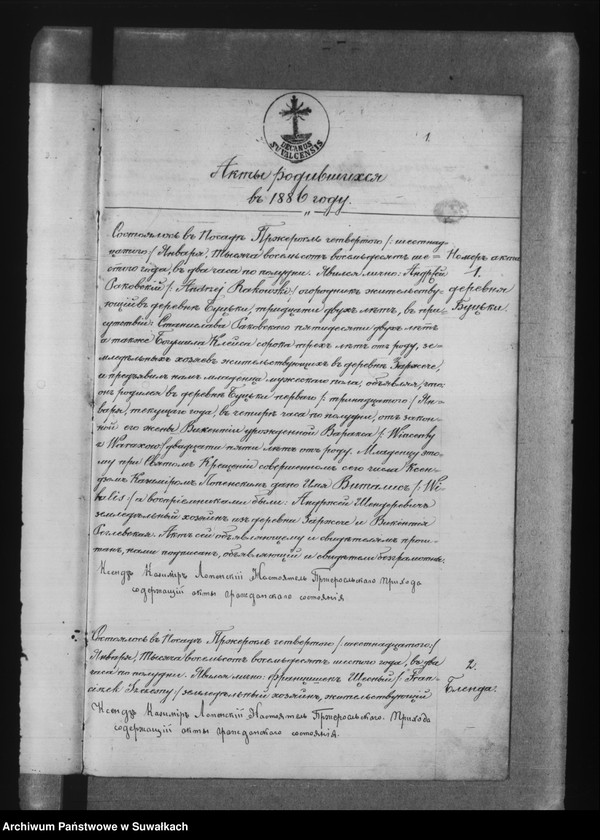 1.
DECANUS
SUVALCENSIS
Акты родившихся
въ 1886 году.
Состоялось въ Посадѣ Пржеросль четвертого /: шестнад-
цатого:/ Января, тысяча восемьсотъ восемьдесятъ ше=
стого года, въ два часа по полудни. Явился лично: Андрѣй
Раковскій /: Andrzej Rakowski:/ огородникъ жительству-
ющій въ деревнѣ Буцьки, тридцати двухъ лѣтъ, въ при-
сутствіи: Станислава Раковского пятидесяти двухъ лѣтъ
а также Богушла Клейса сорока трехъ лѣтъ отъ роду, зе-
мледѣльныхъ хозяевъ жительствующихъ въ деревнѣ Заржече,
и предъявилъ намъ младенца мужескаго пола, объявляя, что
онъ родился въ деревнѣ Буцьки первого /: тринадцатого:/ Ян-
варя, текущаго года, въ четыре часа по полудни, отъ закон-
ной его жены Викентіи урожденной Варакса /: Wincenty
z Waraxow:/ двадцати пяти лѣтъ отъ роду. Младенцу это-
му при Святомъ Крещеніи совершенномъ сего числа Ксен-
дзомъ Казиміромъ Лопенскимъ дано имя Виталисъ /: Wi-
talis:/ а воспріемниками были: Андржей Шендеревичъ
земледѣльный хозяинъ изъ деревни Заржече и Викентія
Роглевская. Актъ сей объявляющему и свидѣтелямъ прочи-
танъ, нами подписанъ, объявляющій и свидѣтели безграмотны.
Ксендзъ Казиміръ Лопенскій Настоятель Пржеросльскаго Прихода
содержащій акты гражданскаго состоянія
Номеръ акта
1.
деревня
Буцьки.
Состоялось въ Посадѣ Пржеросль четвертого /: шестнадцатого:/
Января, тысяча восемьсотъ восемьдесятъ шестого года, въ два
часа по полудни. Явился лично: Францишекъ Щесный /: Fran-
ciszek Szczęsny:/ земледѣльный хозяинъ, жительствующій
Ксендзъ Казиміръ Лопенскій Настоятель Пржеросльскаго Прихода
содержащій акты гражданскаго состоянія.
2.
Бленда.
Archiwum Państwowe w Suwałkach